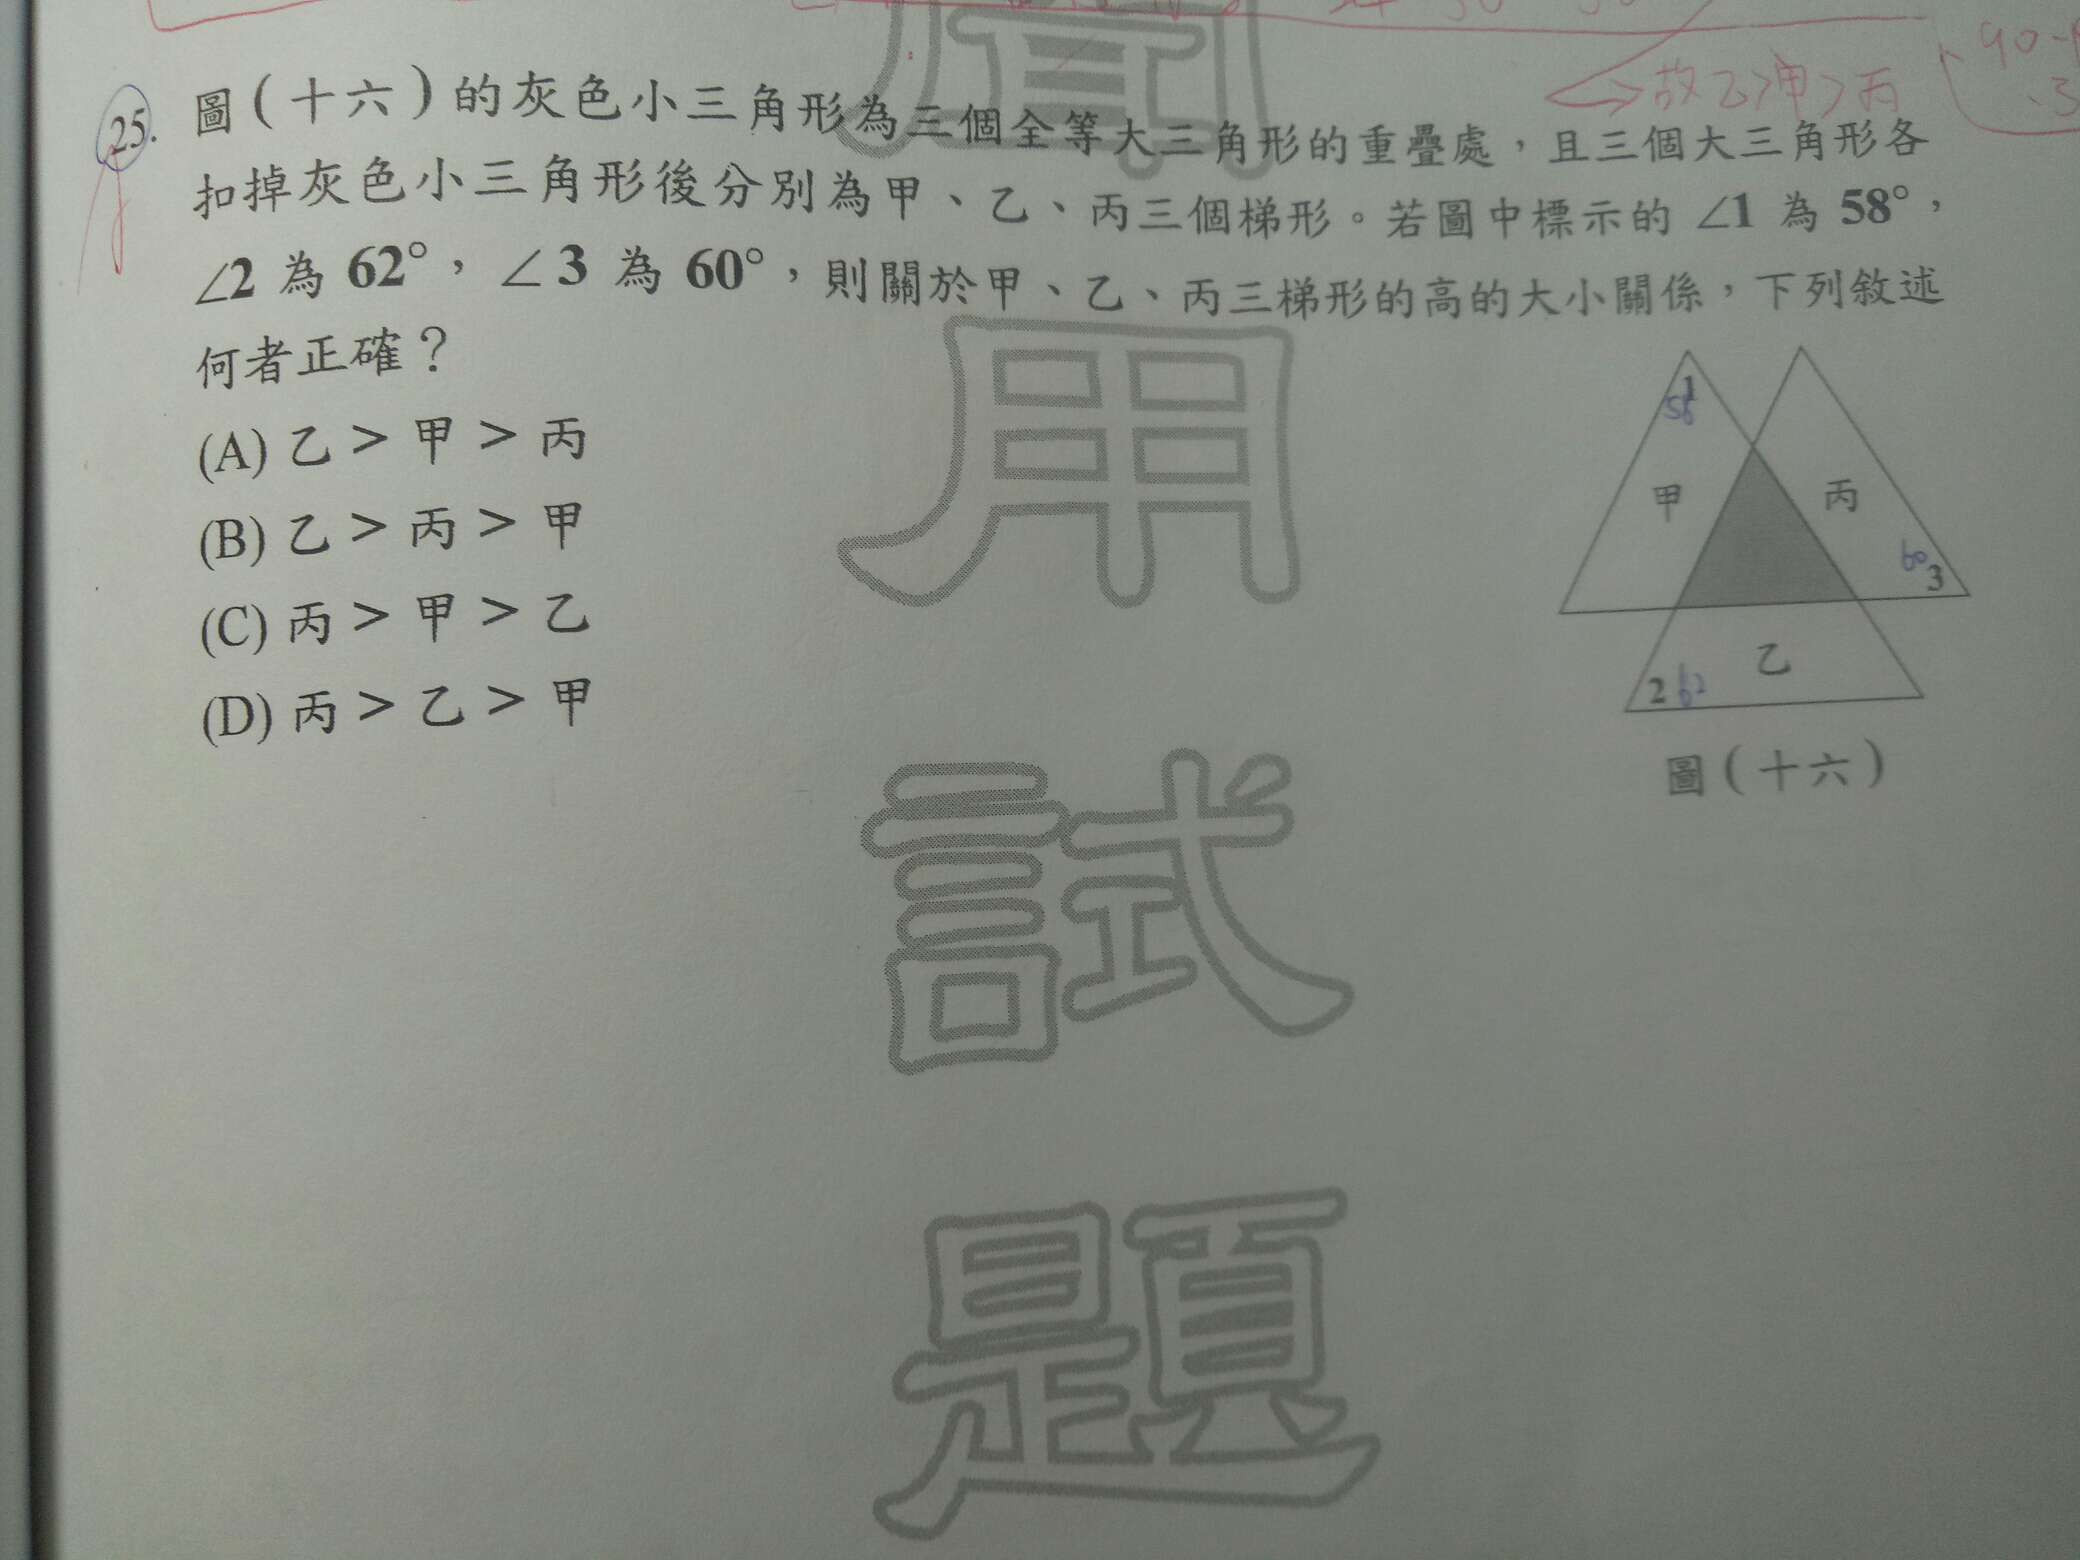 故乙>甲>丙
25. 圖(十六)的灰色小三角形為三個全等大三角形的重疊處，且三個大三角形各
扣掉灰色小三角形後分別為甲、乙、丙三個梯形。若圖中標示的 ∠1 為 58°，
∠2 為 62°，∠3 為 60°，則關於甲、乙、丙三梯形的高的大小關係，下列敘述
何者正確？
(A) 乙 > 甲 > 丙
(B) 乙 > 丙 > 甲
(C) 丙 > 甲 > 乙
(D) 丙 > 乙 > 甲
1
58
甲
丙
60
3
乙
2 62
圖(十六)
用
試
題